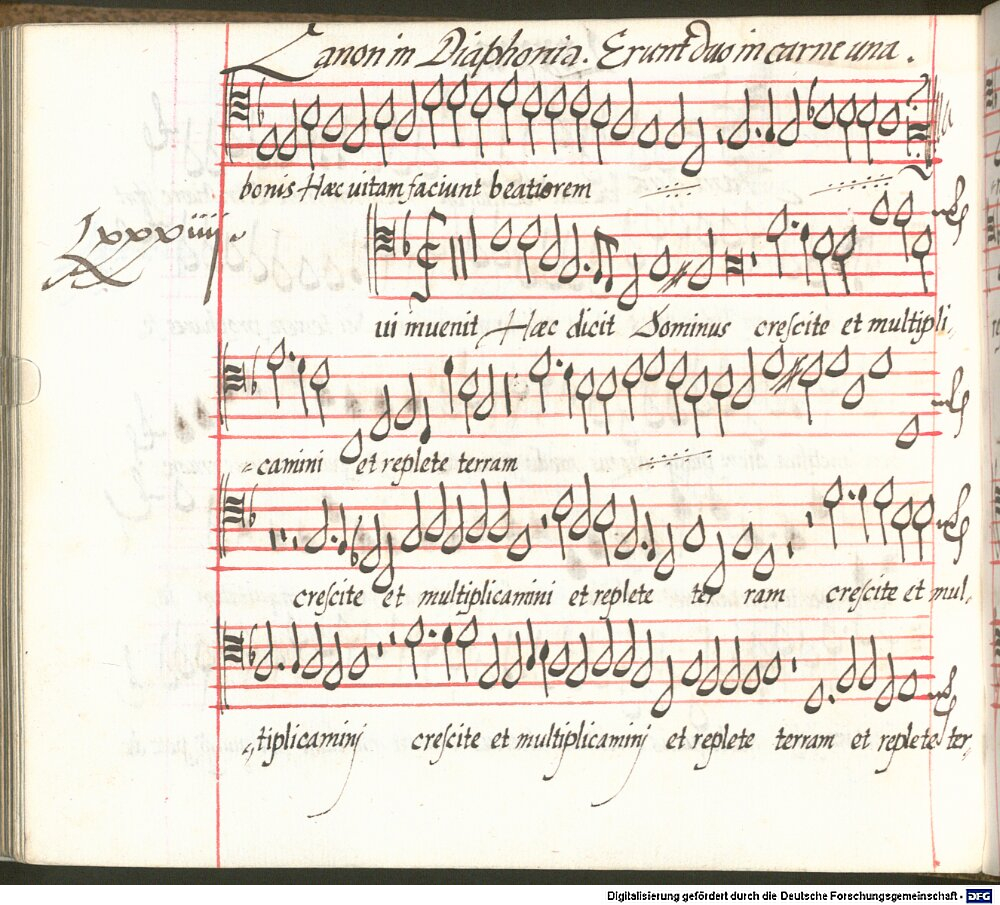 Canon in Diaphonia. Erunt duo in carne una.
bonis Hæc uitam faciunt beatiorem
Lxxxiiij.
ui inuenit Hæc dicit Dominus crescite et multipli,
=camini et replete terram
crescite et multiplicamini et replete ter ram crescite et mul,
,,tiplicaminj crescite et multiplicaminj et replete terram et replete ter,,
Digitalisierung gefördert durch die Deutsche Forschungsgemeinschaft - DFG